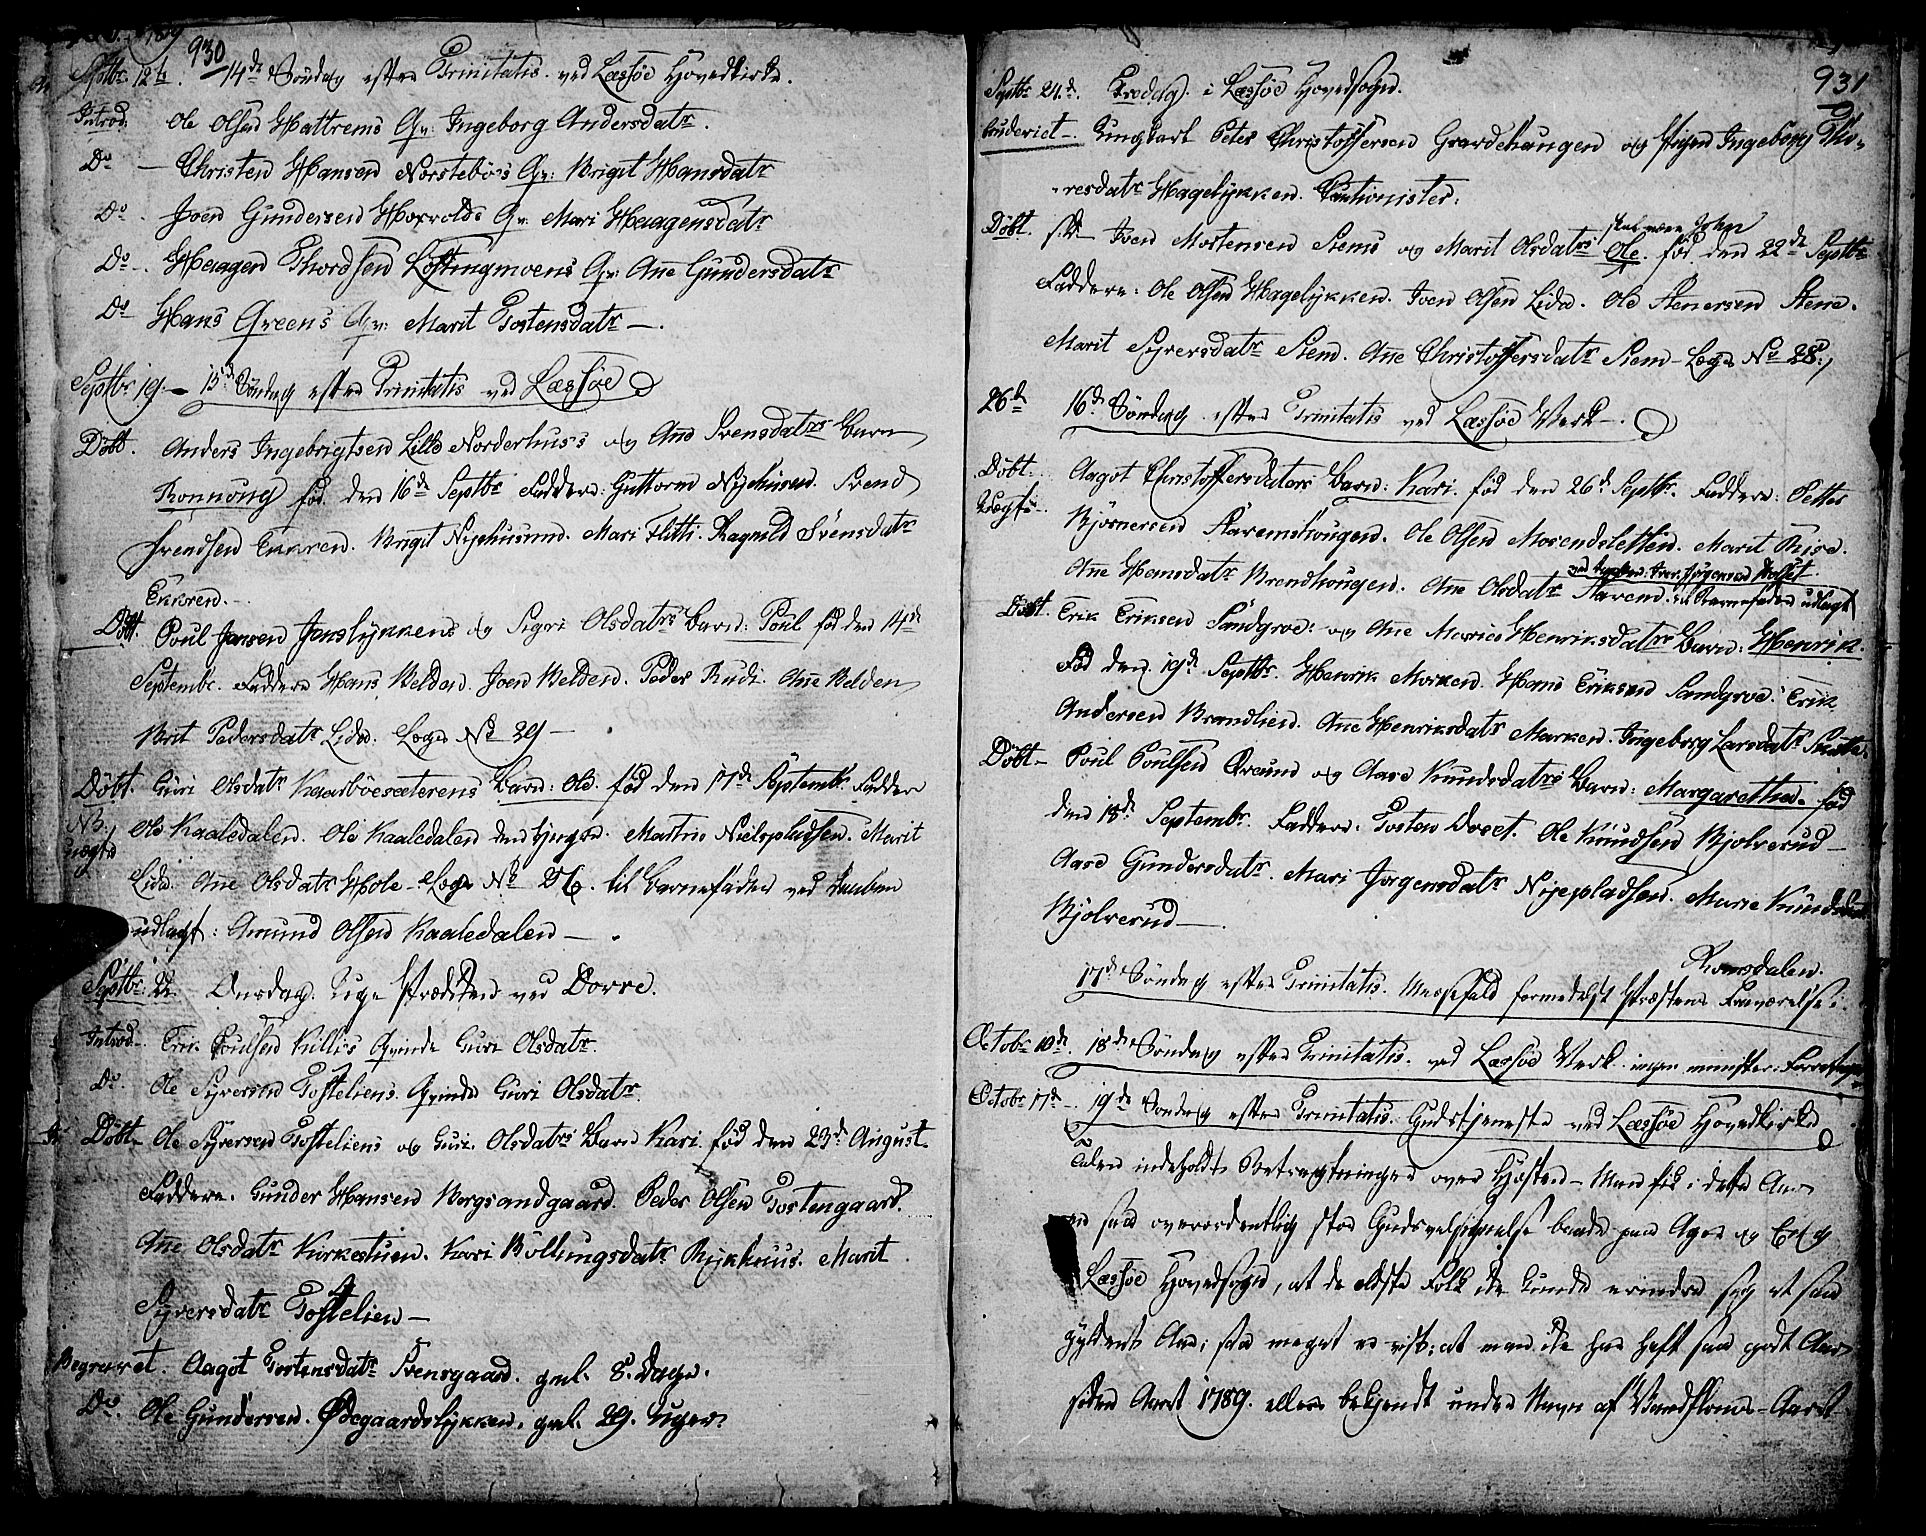 930
Septbr. 12te. 14de Søndag efter Trinitatis. ved Lessøe Hovedkirke.
Introd. Ole Olsen Hattrems Qv: Ingeborg Andersdatr.
Do — Christen Hansen Norstebø's Qv: Brigit Hansdatr
Do. Joen Gundersen Horrolds Qv. Mari Haagensdatr
Do. Haagen Thordsen Løftingmoens Qv: Ane Gundersdatr
Do Hans Qveen's Qv: Marit Tostensdatr —.
Septbr 19. — 15de Søndag efter Trinitatis ved Lessøe
Døbt. Anders Ingebrigtsen Lille Norderhus's og Ane Svensdatrs Barn
Rønnoug fød den 16de Septbr Faddere: Guttorm Nyehusen. Svend
Svendsen Ekkren. Brigit Nyehusund. Mari Flitti. Ragnild Svensdatr
Ekkren.
Døbt. Poul Jensen Jonslykkens og Sigri Olsdatrs Barn: Poul fød den 14de
Septembr. Faddere Hans Belden. Joen Belden. Peder Rudi. Ane Belden
Brit Pedersdatr Lide. Logn No 29 —
Døbt. Guri Olsdatr Kaarbøesæterens Barn: Ole. fød den 17de Septembr. Faddere
NB. Ole Kaaledalen. Ole Kaaledalen den yngre. Martin Nielspladsen. Marit
uægte Lide. Ane Olsdatr Hole - Logn No 26. til Barnefader ved Daaben
udlagt: Amund Olsen Kaaledalen —.
Septbr. 22. Onsdag. Uge Prædiken ved Dovre.
Introd. Erik Poulsen Killi's Qvinde Guri Olsdatr.
Do. Ole Syversen Tofteliens Qvinde Guri Olsdatr.
Døbt. Ole Syversen Tofteliens og Guri Olsdatrs Barn Kari fød den 23de August
Faddere. Gunder Hansen Bergsandgaard. Peder Olsen Tostengaard.
Ane Olsdatr Kirkestuen. Kari Bøllungsdatr Rykhuus. Marit
Syversdatr Toftelien —
Begravet. Aagot Tostensdatr Svensgaard. gml. 8. Dage.
Do. Ole Gundersen. Ødegaardslykken. gml. 29. Uger.
931
Septbr 24de. Fredag. i Lessøe Hovedsogn.
Ungkarl Peter Christoffersen Grardehaugen og Pigen Ingeborg Tho-
resdatr Hagelykken. Cautionister:
skal være John
Døbt. Iven Mortensen Stems og Marit Olsdatrs Ole. fød den 22de Septbr
Faddere: Ole Olsen Hagelykken. Iven Olsen Lide. Ole Stenersen Stene.
Marit Syversdatr Stem. Ane Christoffersdatr Stem - Logn No 28.
26de 16de Søndag efter Trinitatis ved Lessøe Verk —.
Døbt. Aagot Christoffersdatters Barn: Kari fød den 26de Septbr. Faddere: Petter
Uægte. Bjørnersen Staremshougen. Ole Olsen Mosendsletten. Marit Rise.
Ane Hansdatr Brendhougen. Ane Olsdatr Starem. til Barnefader udlagt
ved Daaben: Iver Jørgensen
Døbt. Erik Eriksen Sandgroe: og Ane Maries Henriksdatrs Barn: Henrik.
Fød den 19de Septbr. Henrik Morken. Hans Eriksen Sandgroe. Erik
Andersen Brandlien. Ane Henriksdatr Morken. Ingeborg Larsdatr
Døbt — Poul Poulsen Øreund og Aase Knudsdatrs Barn: Margarethe. fød
den 18de Septembr. Faddere. Tosten Dreet. Ole Knudsen Bjolverud —
Aase Gundersdatr. Mari Jørgensdatr Nyepladsen. Marie Knudsdatr
Bjolverud —.
Romsdalen.
17de Søndag efter Trinitatis. Messefald formedelst Præstens Fraværelse i
Octobr 10de. 18de Søndag efter Trinitatis. ved Lessøe Verk. ingen minister. Forretn
Octobr 17de —. 19de Søndag efter Trinitatis. Gudstjeneste ved Lessøe Hovedkirke
Talen indeholdt Betragtninger over Høsten — Man fik i dette Aar
en saa overordentlig stor Guds velsignelse baade paa Ager og Eng
Lessøe Hovedsogn, at de eldste Folk ikke kunde erindre sig et saa
gyldent Aar; saa meget er vist; at man ikke har haft saa godt Aar
siden Aaret 1789. ellers bekjendt under Navn af Vandfloms-Aaret